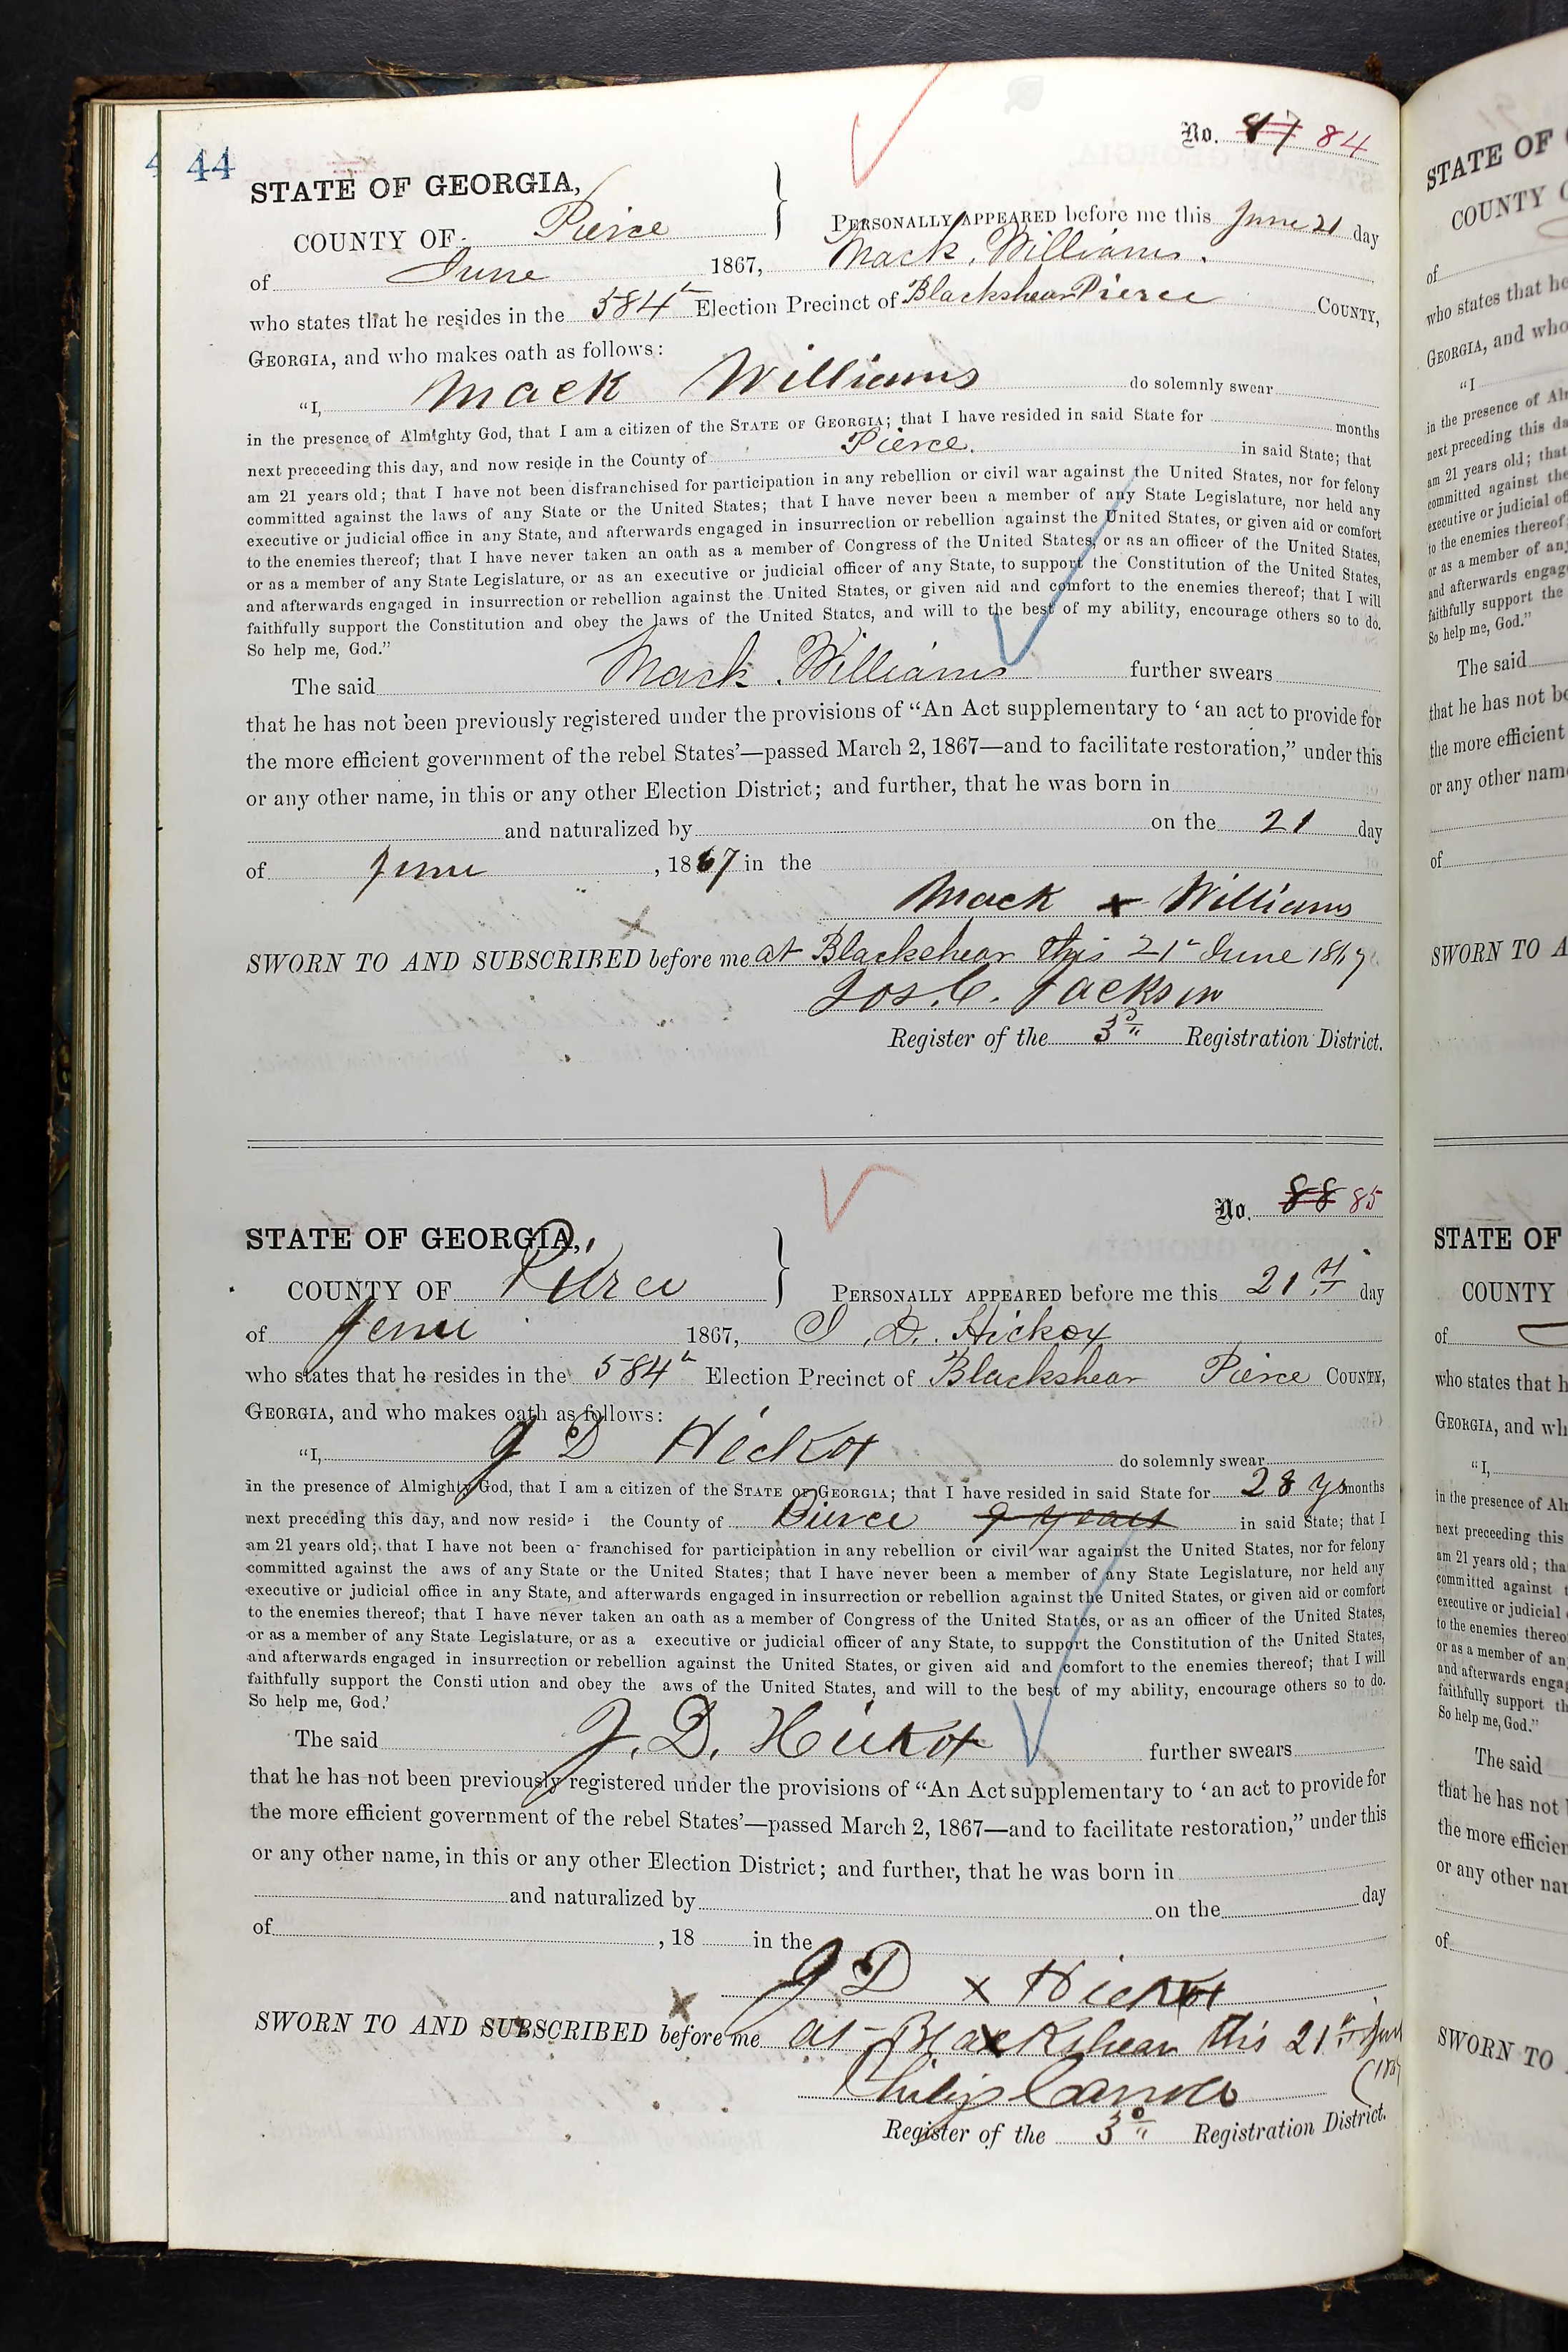 44
No. 87 84
STATE OF GEORGIA,
COUNTY OF Pierce
PERSONALLY APPEARED before me this June 21 day
of June 1867, Mack Williams.
who states that he resides in the 584th Election Precinct of Blackshear Pierce COUNTY,
GEORGIA, and who makes oath as follows:
"I, Mack Williams do solemnly swear
in the presence of Almighty God, that I am a citizen of the STATE OF GEORGIA; that I have resided in said State for months
next preceeding this day, and now reside in the County of Pierce in said State; that
am 21 years old; that I have not been disfranchised for participation in any rebellion or civil war against the United States, nor for felony
committed against the laws of any State or the United States; that I have never been a member of any State Legislature, nor held any
executive or judicial office in any State, and afterwards engaged in insurrection or rebellion against the United States, or given aid or comfort
to the enemies thereof; that I have never taken an oath as a member of Congress of the United States, or as an officer of the United States,
or as a member of any State Legislature, or as an executive or judicial officer of any State, to support the Constitution of the United States,
and afterwards engaged in insurrection or rebellion against the United States, or given aid and comfort to the enemies thereof; that I will
faithfully support the Constitution and obey the laws of the United States, and will to the best of my ability, encourage others so to do.
So help me, God."
The said Mack Williams further swears
that he has not been previously registered under the provisions of "An Act supplementary to 'an act to provide for
the more efficient government of the rebel States'—passed March 2, 1867—and to facilitate restoration," under this
or any other name, in this or any other Election District; and further, that he was born in
and naturalized by on the 21 day
of June, 1867 in the
Mack x Williams
x
SWORN TO AND SUBSCRIBED before me at Blackshear this 21st June 1867
Jos. C. Jackson
Register of the 3D Registration District.
No. 88 85
STATE OF GEORGIA,
COUNTY OF Pierce
PERSONALLY APPEARED before me this 21st day
of June 1867, J. D. Hickox
who states that he resides in the 584th Election Precinct of Blackshear Pierce COUNTY,
GEORGIA, and who makes oath as follows:
"I, J D Hickox do solemnly swear
in the presence of Almighty God, that I am a citizen of the STATE OF GEORGIA; that I have resided in said State for 28 ys months
next preceding this day, and now reside i the County of Pierce 9 years in said State; that I
am 21 years old; that I have not been franchised for participation in any rebellion or civil war against the United States, nor for felony
committed against the aws of any State or the United States; that I have never been a member of any State Legislature, nor held any
executive or judicial office in any State, and afterwards engaged in insurrection or rebellion against the United States, or given aid or comfort
to the enemies thereof; that I have never taken an oath as a member of Congress of the United States, or as an officer of the United States,
or as a member of any State Legislature, or as a executive or judicial officer of any State, to support the Constitution of the United States,
and afterwards engaged in insurrection or rebellion against the United States, or given aid and comfort to the enemies thereof; that I will
faithfully support the Consti ution and obey the aws of the United States, and will to the best of my ability, encourage others so to do.
So help me, God.'
The said J. D. Hickox further swears
that he has not been previously registered under the provisions of "An Act supplementary to 'an act to provide for
the more efficient government of the rebel States'—passed March 2, 1867—and to facilitate restoration," under this
or any other name, in this or any other Election District; and further, that he was born in
and naturalized by on the day
of , 18 in the
J D x Hickox
x
SWORN TO AND SUBSCRIBED before me at Blackshear this 21st June
1867
Philip
Register of the 3D Registration District.
STATE OF
COUNTY
of
who states that he
GEORGIA, and who
"I
in the presence of Al
next preceding this da
am 21 years old; that
committed against the
executive or judicial of
to the enemies thereof;
or as a member of any
and afterwards engag
faithfully support the
So help me, God."
The said
that he has not b
the more efficient
or any other nam
of
SWORN TO A
STATE OF
COUNTY
of
who states that h
GEORGIA, and wh
"I,
in the presence of Al
next preceeding this
am 21 years old; tha
committed against t
executive or judicial
to the enemies thereo
or as a member of an
and afterwards engag
faithfully support th
So help me, God."
The said
that he has not
the more efficien
or any other nam
of
SWORN TO